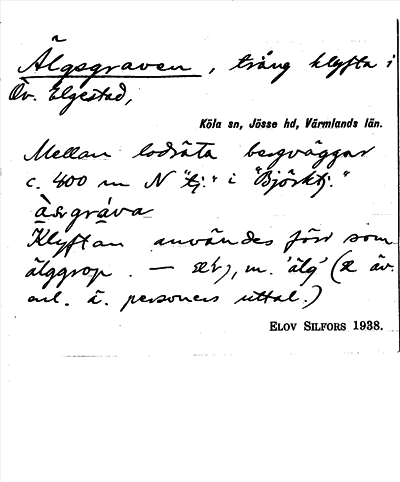 Älgsgraven, trång klyfta i
Öv. Elgestad,
Köla sn, Jösse hd, Värmlands län.
Mellan lodräta bergväggar
c. 400 m N "tj." i "Björktj."
Klyftan användes förr som
älggrop. — m. 'älg' ( äv.
enl. ä. personers uttal.)
ELOV SILFORS 1938.